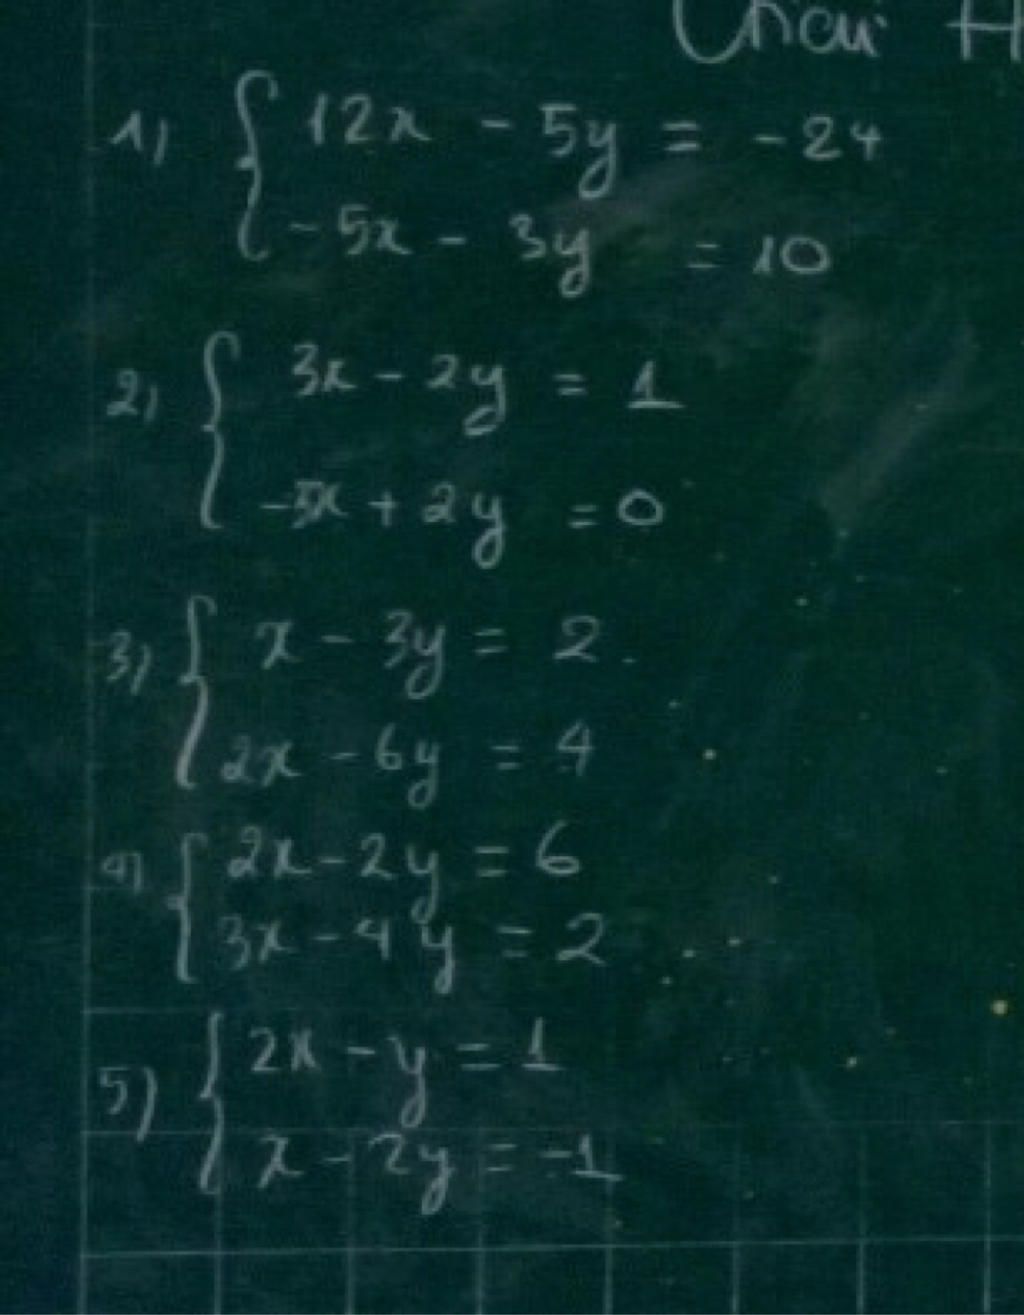 1) { 12x - 5y = -24
-5x - 3y = 10
2) { 3x - 2y = 1
-5x + 2y = 0
3) { x - 3y = 2
2x - 6y = 4
4) { 2x - 2y = 6
3x - 4y = 2
5) { 2x - y = 1
x - 2y = -1